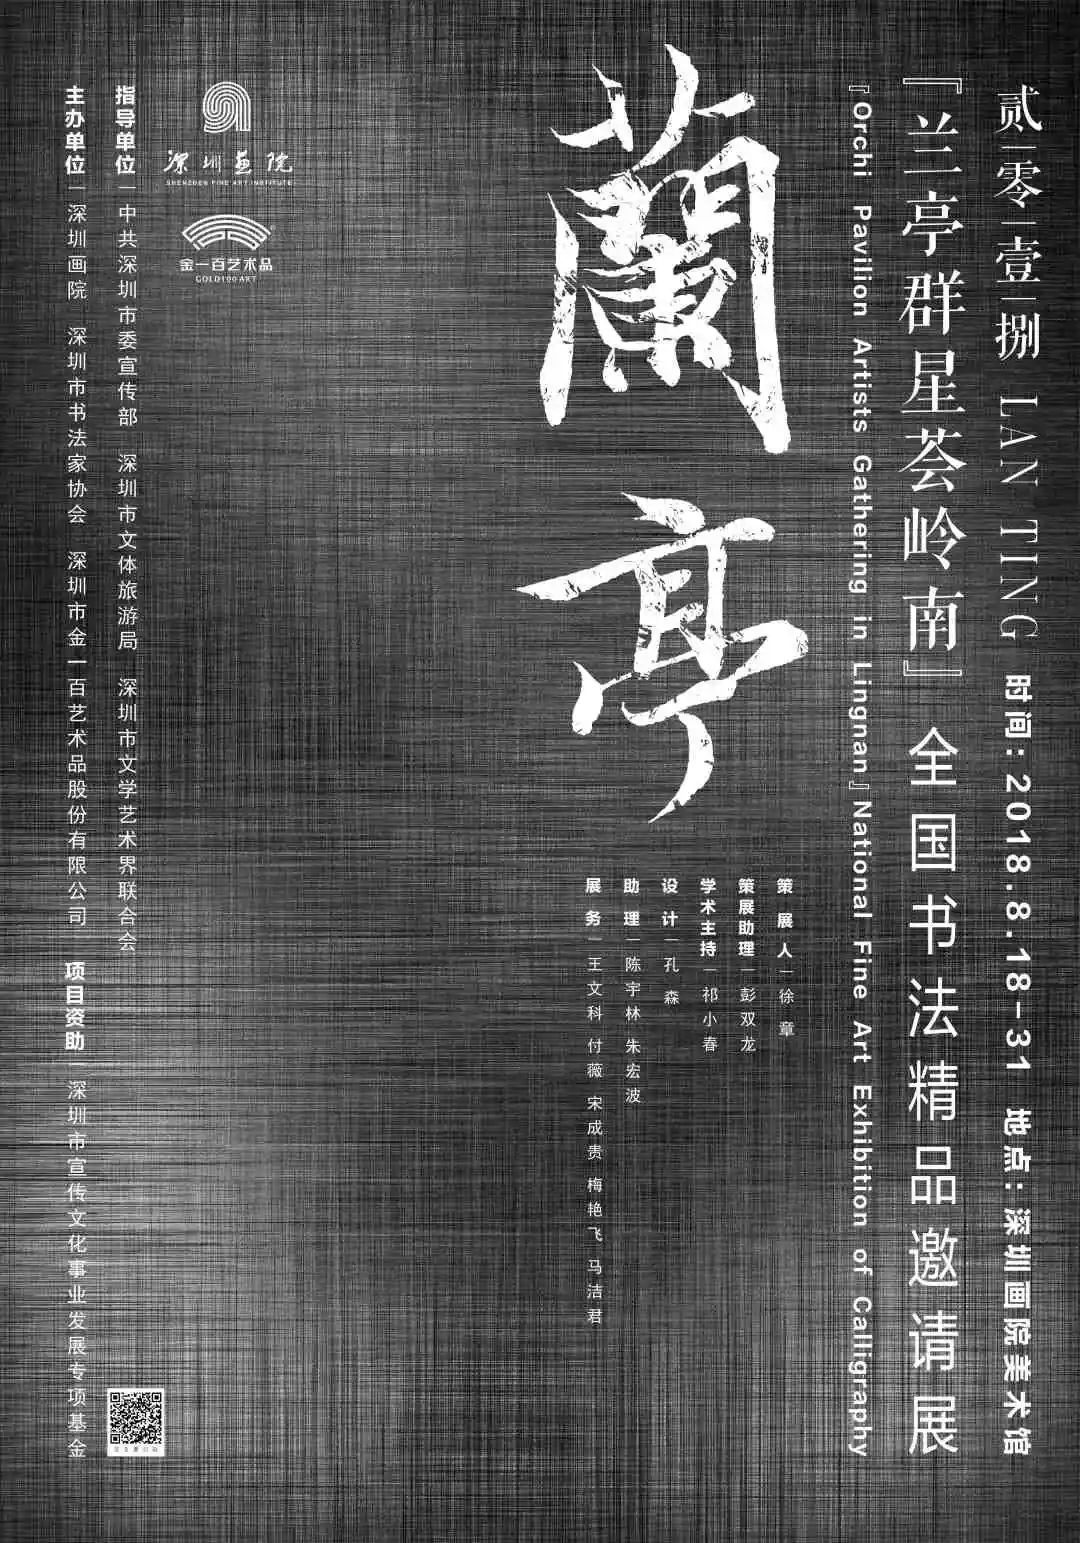 贰零壹捌 LAN TING 时间：2018.8.18-31 地点：深圳画院美术馆
『兰亭群星荟岭南』全国书法精品邀请展
『Orchi Pavilion Artists Gathering in Lingnan』National Fine Art Exhibition of Calligraphy
蘭亭
策展人 徐章
策展助理 彭双龙
学术主持 祁小春
设计 孔森
助理 陈宇林 朱宏波
展务 王文科 付薇 宋成贵 梅艳飞 马洁君
深圳画院
SHENZHEN FINE ART INSTITUTE
金一百艺术品
GOLD100 ART
指导单位 中共深圳市委宣传部 深圳市文体旅游局 深圳市文学艺术界联合会
主办单位 深圳画院 深圳市书法家协会 深圳市金一百艺术品股份有限公司 项目资助 深圳市宣传文化事业发展专项基金